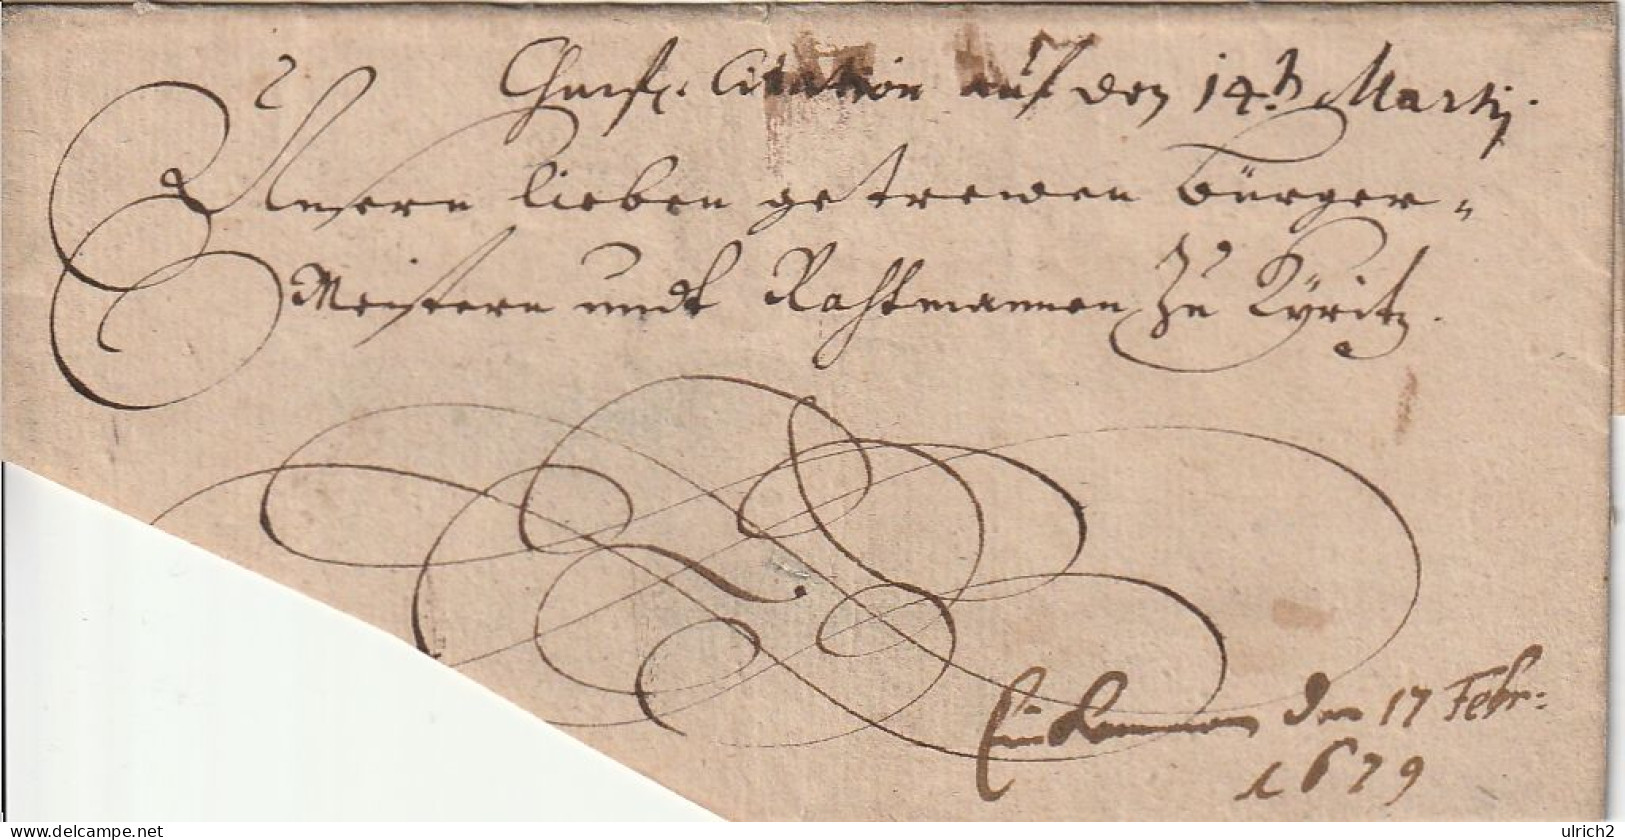 Churf. Citation auf den 14t. Martij.
Unsern lieben getrewen Bürger-
Meistern undt Rahtmannen zu Kyritz.
Einkommen den 17 Febr:
1679
delcampe.net
ulrich2